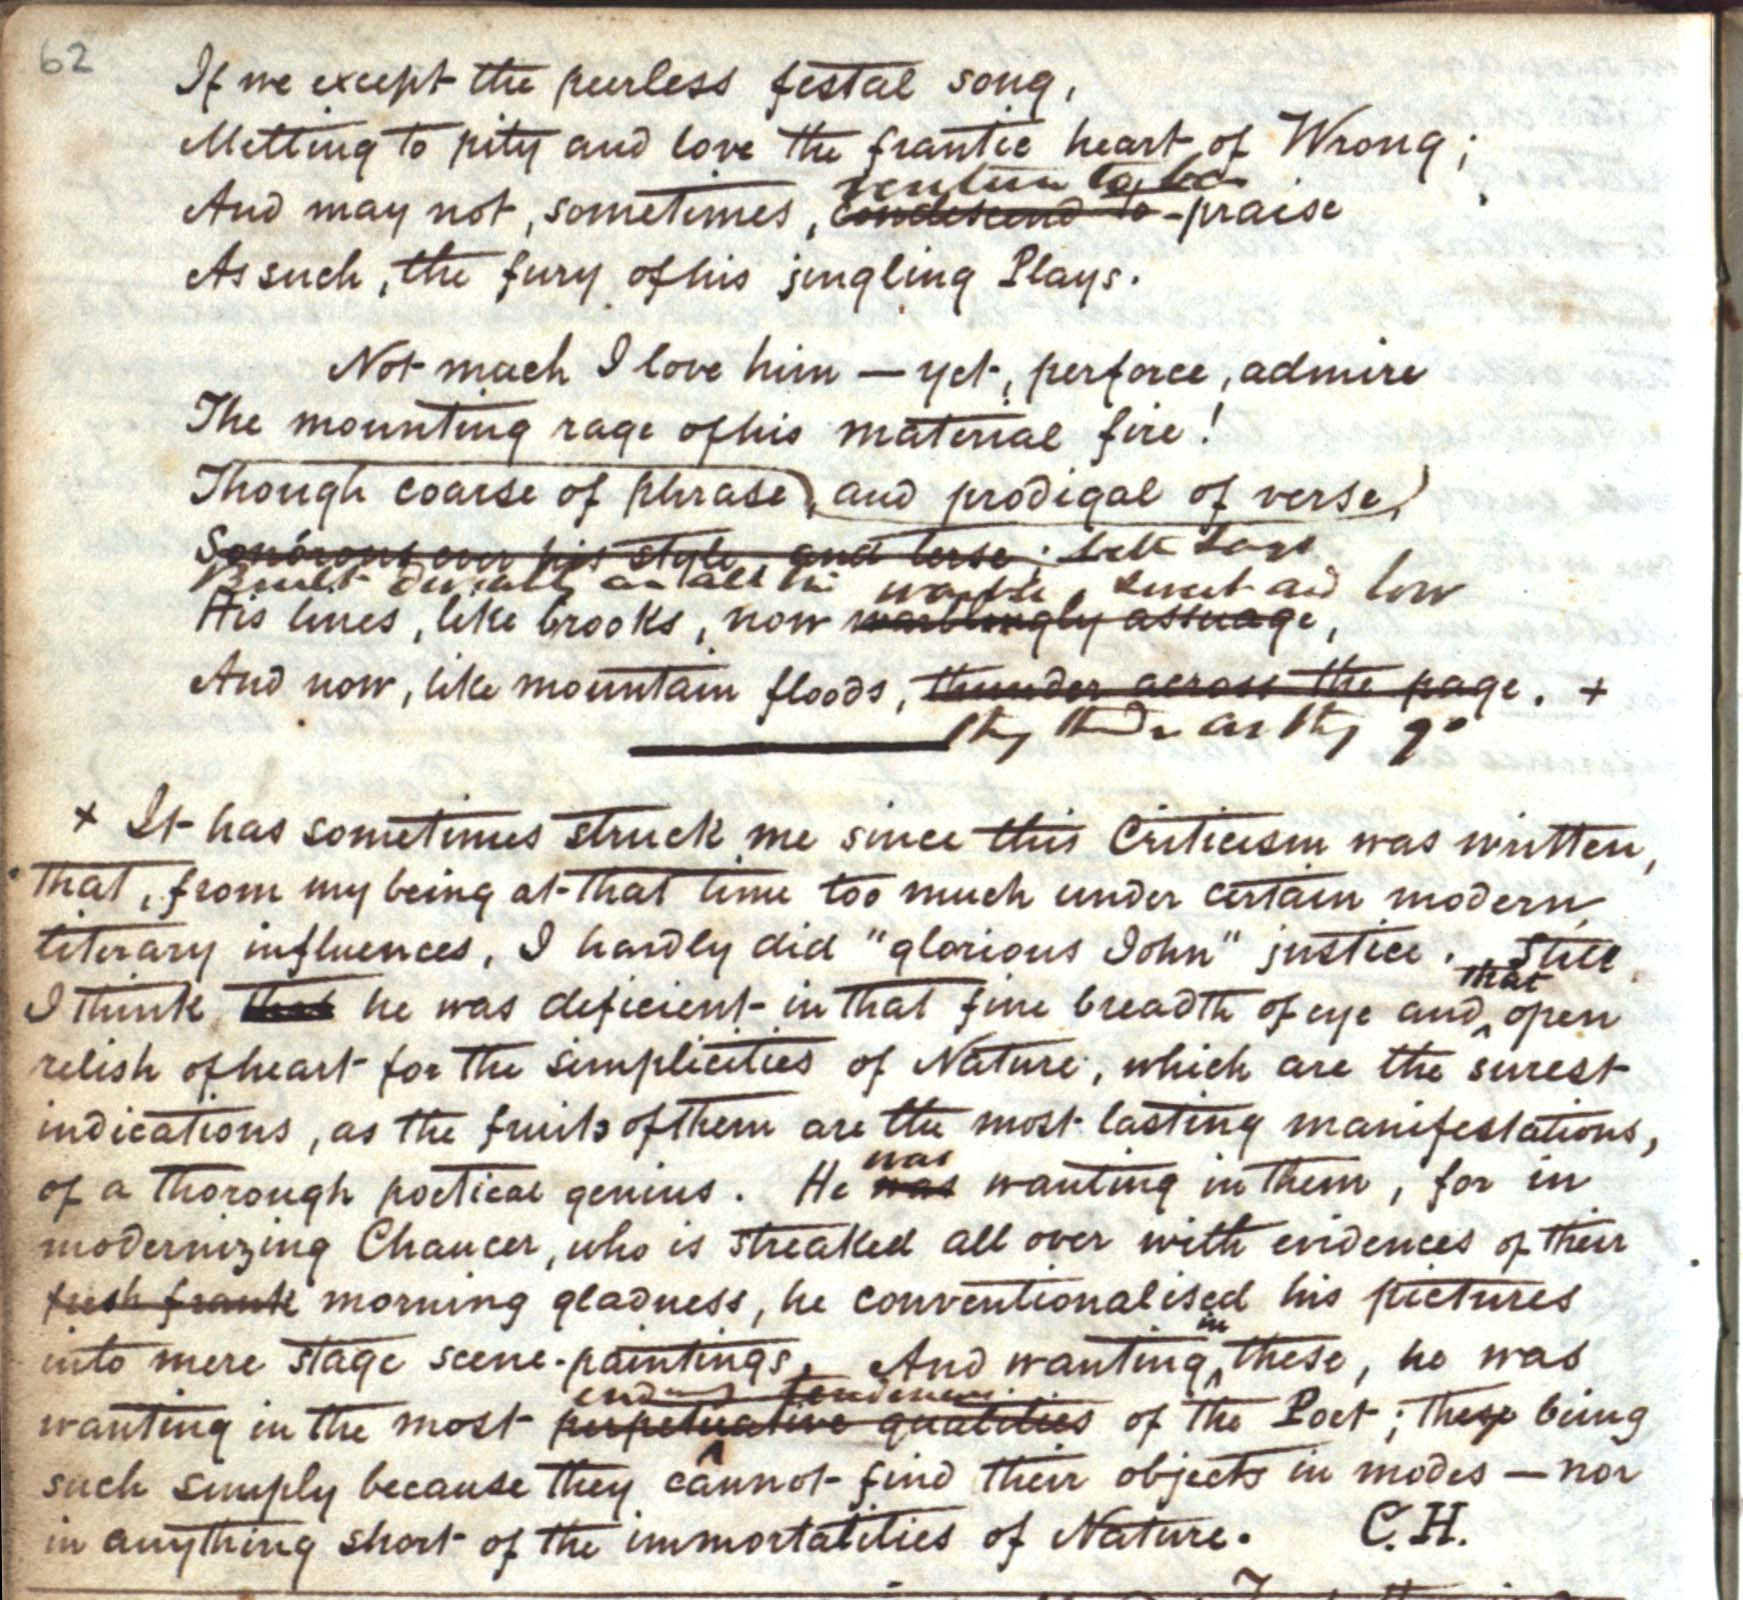 62
If we except the peerless festal song,
Melting to pity and love the frantic heart of Wrong;
venture to be
And may not, sometimes, condescend to - praise
As such, the fury of his jingling Plays.
Not much I love him — yet, perforce, admire
The mounting rage of his material fire!
Though coarse of phrase, and prodigal of verse,
Sonorous ever his style, and terse:
warble, sweet and low
His lines, like brooks, now warblingly assuage,
And now, like mountain floods, thunder across the page. +
they thunder as they go
+ It has sometimes struck me since this Criticism was written,
that, from my being at that time too much under certain modern
literary influences, I hardly did "glorious John" justice. Still
that
I think that he was deficient in that fine breadth of eye and ^ open
relish of heart for the simplicities of Nature, which are the surest
indications, as the fruits of them are the most lasting manifestations,
was
of a thorough poetical genius. He was wanting in them, for in
modernizing Chaucer, who is streaked all over with evidences of their
fresh frank morning gladness, he conventionalised his pictures
in
into mere stage scene-paintings. And wanting ^ these, he was
enduring tendencies
wanting in the most perpetuative qualities of the Poet; these being
such simply because they cannot find their objects in modes — nor
in anything short of the immortalities of Nature. C.H.